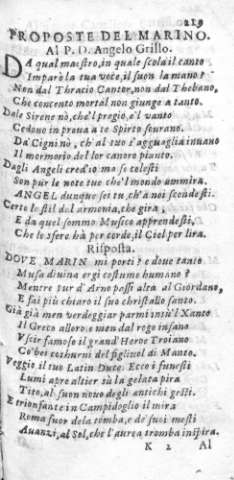 219
PROPOSTE DEL MARINO.
Al P. D. Angelo Grillo.
DA qual maestro, in quale scola il canto
Imparò la tua voce, il suon la mano?
Non dal Thracio Cantor, non dal Thebano,
Che concento mortal non giunge a tanto.
Dale Sirene nò, che'l pregio, e'l vanto
Cedono in proua a te Spirto sourano.
Da' Cigni nò, ch'al tuo s'agguaglia in uano
Il mormorio del lor canoro pianto.
Dagli Angeli cred'io ma se celesti
Son pur le note tue che'l mondo ammira,
ANGEL dunque sei tu, ch'a noi scendesti.
Certo lo stil del armonia, che gira,
E da quel sommo Musico apprendesti,
Che le sfere hà per corde, il Ciel per lira.
Risposta.
DOVE MARIN mi porti? e doue tanto
Musa diuina ergi costume humano?
Mentre tu d'Arno passi alta al Giordano,
E fai più chiaro il suo christallo santo.
Già già men verdeggiar parmi insù'l Xanto
Il Greco alloro: e men dal rogo insano
Vscir famoso il grand'Heroe Troiano
Co'bei coshurni del figliuol di Manto.
Veggio il tuo Latin Duce: Ecco i funesti
Lumi apre altier sù la gelata pira
Tito, al suon nouo degli antichi gesti.
E trionfante in Campidoglio il mira
Roma fuor dela tomba, e de' suoi mesti
Auanzi, al Sol, che l'aurea tromba inspira.
K 2 Al